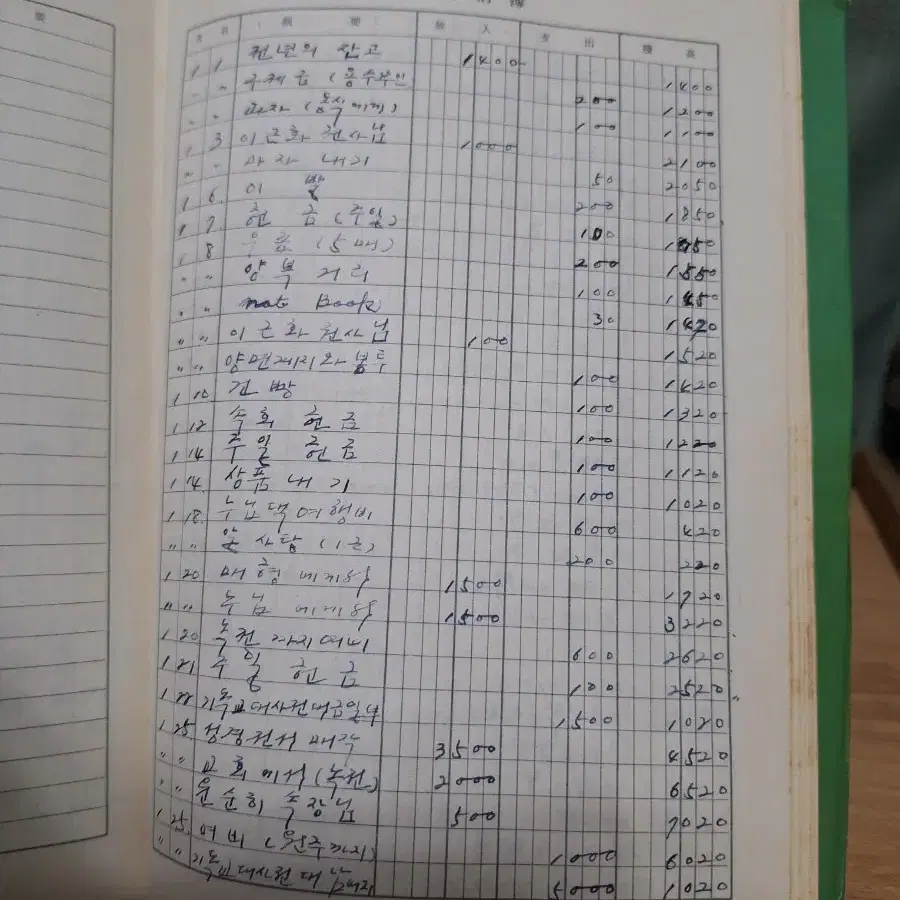 要
月 日 摘 要 收 入 支 出 殘 高
1 1 전년의 잔고 1400 1400
" " 구제금 (용주부인 200 1200
" " 과자 (동식에게) 100 1100
1 3 이근화 권사님 1000 2100
" " 과자 내기 50 2050
1 6 이 발 200 1850
1 7 헌 금 (주일) 100
1 8 우표 (5매) 200
" " 양복 거리 100
" " note Book 30 1420
" " 이근화 권사님 100 1520
" " 양면제지와 봉투 100 1420
1 10 건 빵 100 1320
1 12 속회 헌금 100 1220
1 14 주일 헌금 100 1120
1 14. 상품 내기 100 1020
1 18. 누님댁 여행비 600 420
" " 알 사탕 (1근) 200 220
1 20 매형에게서 1500 1720
" " 누님에게서 1500 3220
1 20 까지 여비 600 2620
1 21 주일 헌금 100 2520
1 22 기독교대사전 대금일부 1500 1020
1 25 성경전서 매각 3500 4520
" " 교회에서 2000 6520
" " 윤순희 속장님 500 7020
1 25. 여비 (원주까지) 1000 6020
" " 기독교대사전대 나머지 5000 1020